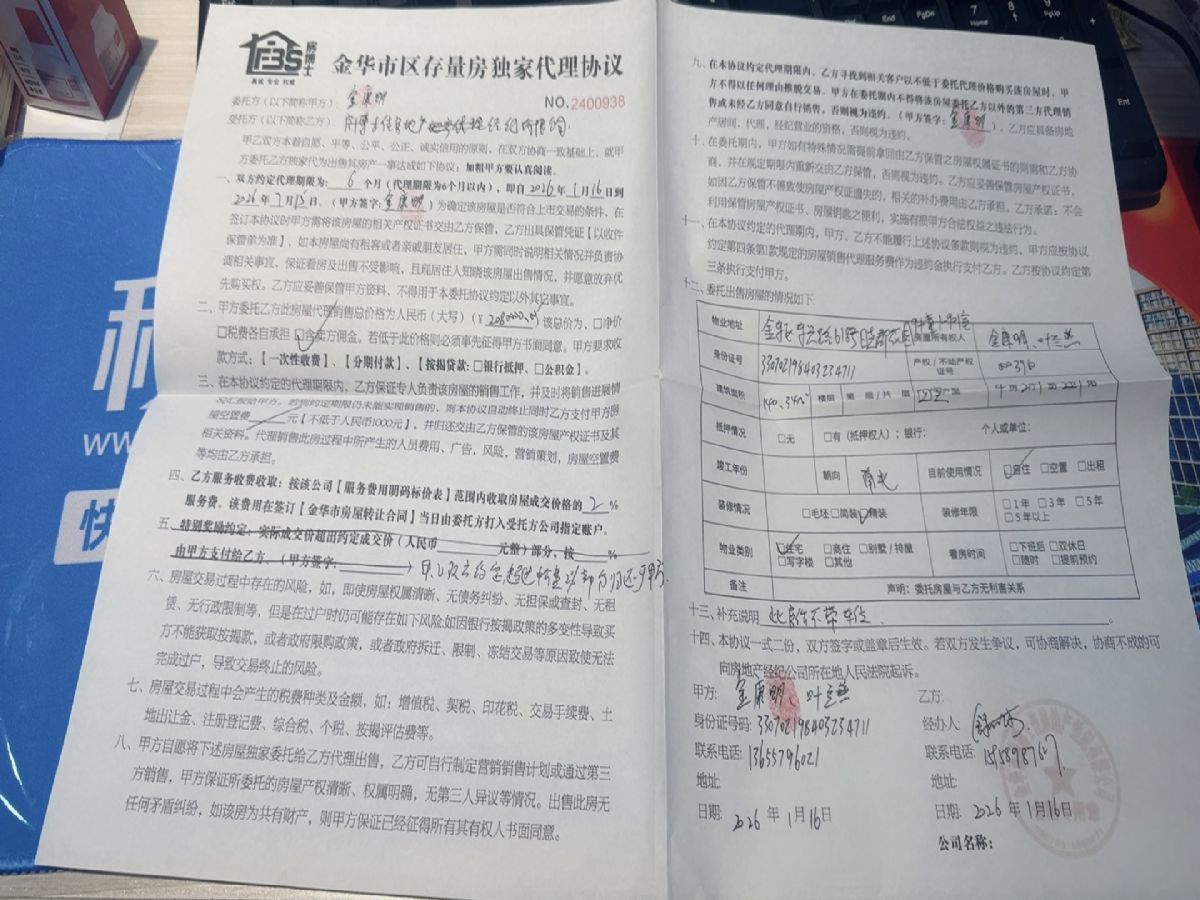 FBS
房博士
真诚 专业 权威
金华市区存量房独家代理协议
委托方（以下简称甲方）：金康明
NO.2400938
受托方（以下简称乙方）：
甲乙双方本着自愿、平等、公平、公正、诚实信用的原则，在双方协商一致基础上，就甲
方委托乙方独家代为出售其房产一事达成如下协议：加粗甲方要认真阅读。
一、双方约定代理期限为：6 个月（代理期限为6个月以内），即自2026年1月16日到
2026年7月15日。（甲方签字：金康明）为确定该房屋是否符合上市交易的条件，在
签订本协议时甲方需将该房屋的相关产权证书交由乙方保管，乙方出具保管凭证【以收件
保管单为准】、如本房屋尚有租客或者亲戚朋友居住，甲方需同时说明相关情况并负责协
调相关事宜、保证看房及出售不受影响，且现居住人知晓该房屋出售情况，并愿意放弃优
先购买权。乙方应妥善保管甲方资料、不得用于本委托协议约定以外其它事宜。
二、甲方委托乙方此房屋代理销售总价格为人民币（大写）（¥2080000.00）该总价为、□净价
□税费各自承担 □含卖方佣金。若低于此价格则必须事先征得甲方书面同意。甲方要求收
款方式：【一次性收费】、【分期付款】、【按揭贷款:□银行抵押、□公积金】。
三、在本协议约定的代理期限内，乙方保证专人负责该房屋的销售工作，并及时将销售进展情
况汇报给甲方。若到约定期限仍未能实现销售的，则本协议自动终止同时乙方支付甲方房
屋空置费 元【不低于人民币1000元】，并归还交由乙方保管的该房屋产权证书及其
相关资料。代理销售此房过程中所产生的人员费用、广告，风险，营销策划，房屋空置费
等均由乙方承担。
四、乙方服务收费收取：按该公司【服务费用明码标价表】范围内收取房屋成交价格的 2 %
服务费。该费用在签订【金华市房屋转让合同】当日由委托方打入受托方公司指定账户。
五、特别奖励约定：实际成交价超出约定成交价（人民币 元整）部分，按 %
由甲方支付给乙方、（甲方签字： ）甲乙双方约定超过
六、房屋交易过程中存在的风险，如，即使房屋权属清晰、无债务纠纷、无担保或查封、无租
赁、无行政限制等，但是在过户时仍可能存在如下风险:如因银行按揭政策的多变性导致买
方不能获取按揭款，或者政府限购政策，或者政府拆迁、限制、冻结交易等原因致使无法
完成过户，导致交易终止的风险。
七、房屋交易过程中会产生的税费种类及金额，如：增值税、契税、印花税、交易手续费、土
地出让金、注册登记费、综合税、个税、按揭评估费等。
八、甲方自愿将下述房屋独家委托给乙方代理出售，乙方可自行制定营销销售计划或通过第三
方销售，甲方保证所委托的房屋产权清晰、权属明确，无第三人异议等情况。出售此房无
任何矛盾纠纷，如该房为共有财产，则甲方保证已经征得所有其有权人书面同意。
九、在本协议约定代理期限内，乙方寻找到相关客户以不低于委托代理价格购买该房屋时，甲
方不得以任何理由推脱交易。甲方在委托期内不得将该房屋委托乙方以外的第三方代理销
售或未经乙方同意自行销售，否则视为违约。（甲方签字：金康明）、乙方应具备房地
产居间，代理，经纪营业的资格，否则视为违约。
十、在委托期内，甲方如有特殊情况需提前拿回由乙方保管之房屋权属证书的则需和乙方协
商，并在规定期限内重新交由乙方保管，否则视为违约。乙方应妥善保管房屋产权证书，
如因乙方保管不善致使房屋产权证遗失的，相关的补办费用由乙方承担。乙方承诺：不会
利用保管房屋产权证书、房屋钥匙之便利，实施有损甲方合法权益之违法行为。
十一、在本协议约定的代理期内，甲方、乙方不能履行上述协议条款则视为违约，甲方应按协议
约定第四条第1款规定的房屋销售代理服务费作为违约金执行支付乙方。乙方按协议约定第
三条执行支付甲方。
十二、委托出售房屋的情况如下：
物业地址 房屋所有权人 金康明、叶兰燕
身份证号 330702198403234711 产权/不动产权证号
建筑面积 140.34m² 楼层 第 层/共 层
抵押情况 □无 □有（抵押权人）：银行： 个人或单位：
竣工年份 朝向 南北 目前使用情况 □自住 □空置 □出租
装修情况 □毛坯□简装□精装 装修年限 □1年 □3年 □5年 □5年以上
物业类别 □住宅 □商住 □别墅/排屋 □写字楼 □其他 看房时间 □下班后 □双休日 □随时 □提前预约
备注 声明：委托房屋与乙方无利害关系
十三、补充说明 此房不带车位。
十四、本协议一式二份，双方签字或盖章后生效。若双方发生争议，可协商解决，协商不成的可
向房地产经纪公司所在地人民法院起诉。
甲方：金康明、叶兰燕 乙方：
身份证号码：330702198403234711 经办人：
联系电话：13655796021 联系电话：
地址： 地址：
日期：2026年1月16日 日期：2026年1月16日
公司名称：